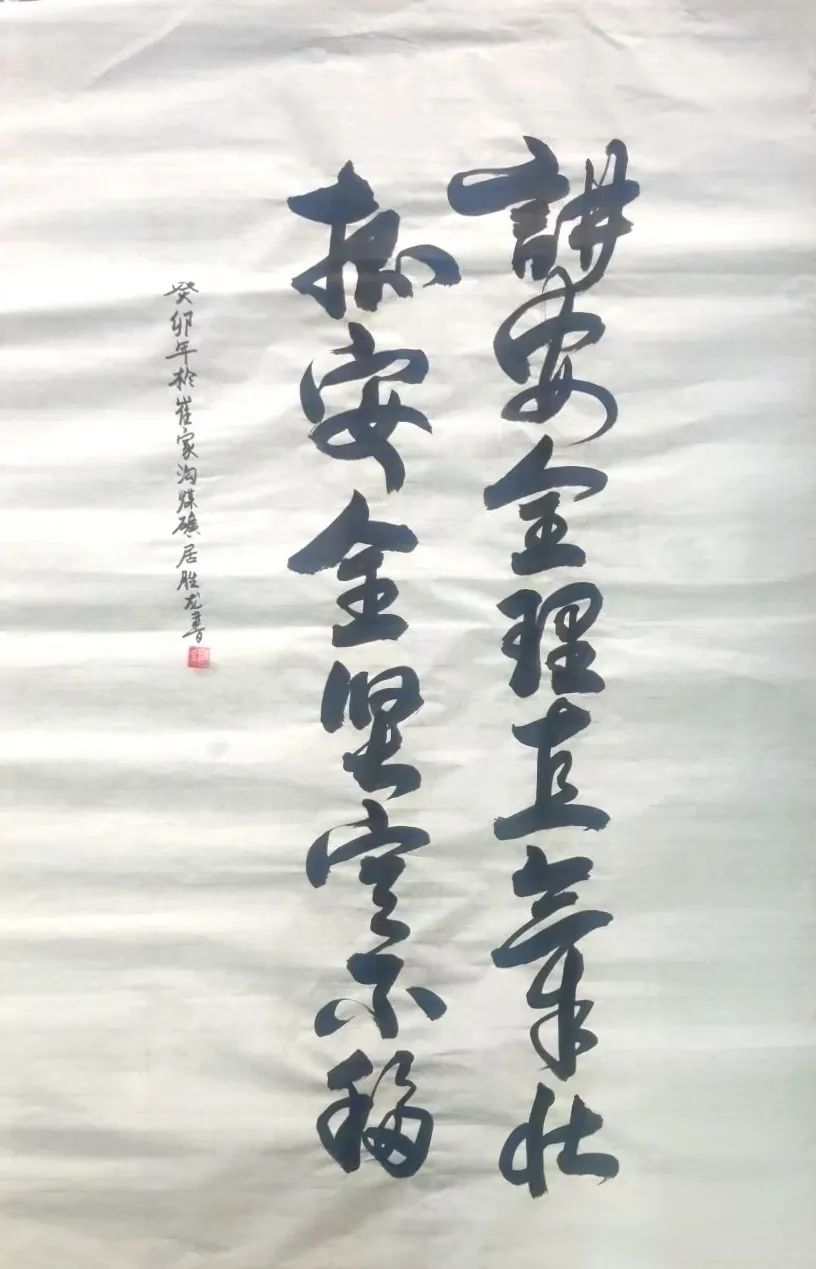 講安全理直氣壮
抓安全坚定不移
癸卯年於崔家沟煤礦居胜龙書